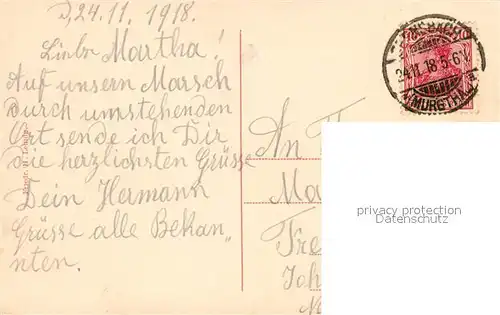 D, 24.11.1918.
Liebe Martha!
Auf unsern Marsch
durch umstehenden
Ort sende ich Dir
die herzlichsten Grüsse
Dein Hermann
Grüsse alle Bekan„
nten.
An
Ma
Fre
Joh
24.11.18.5-6V.
(MURGTHAL)
privacy protection
Datenschutz